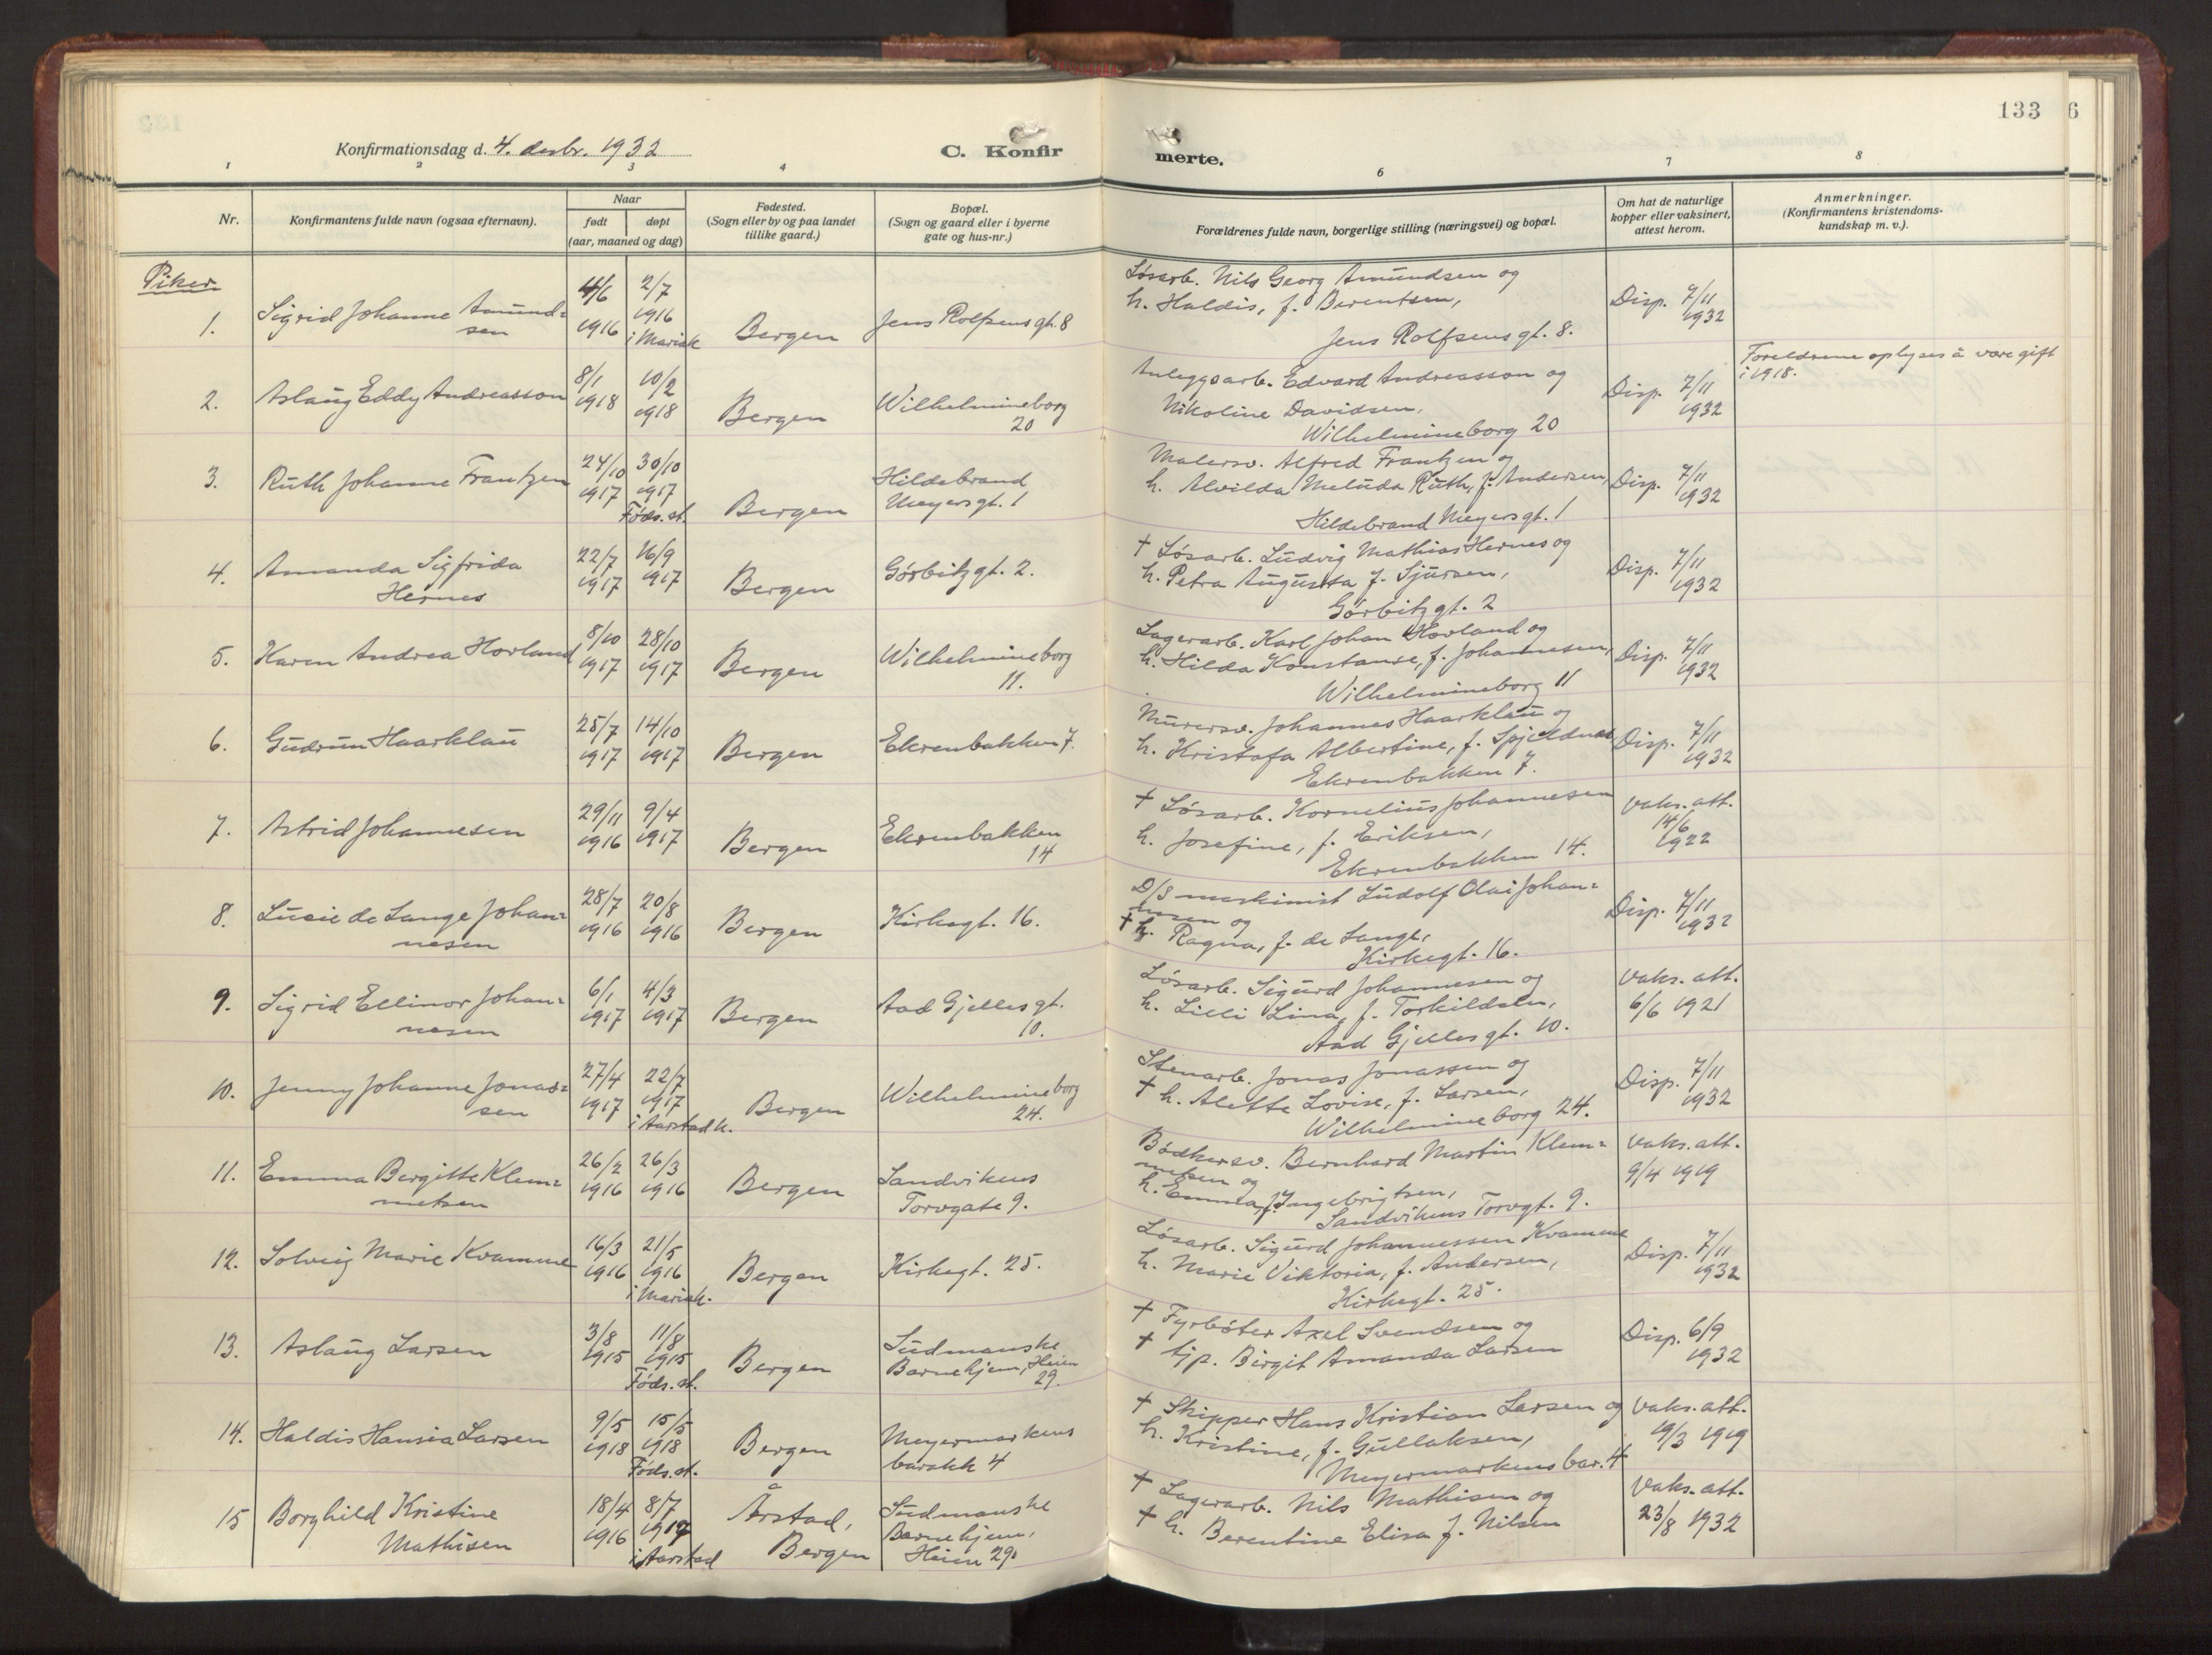 133
6
Konfirmationsdag d. 4. desbr. 1932
C. Konfir
merte.
1
2
3
4
6
7
8
Nr.
Konfirmantens fulde navn (ogsaa efternavn).
Naar
født
døpt
(aar, maaned og dag)
Fødested.
(Sogn eller by og paa landet
tillike gaard.)
Bopæl.
(Sogn og gaard eller i byerne
gate og hus-nr.)
Forældrenes fulde navn, borgerlige stilling (næringsvei) og bopæl.
Om hat de naturlige
kopper eller vaksinert,
attest herom.
Anmerkninger.
(Konfirmantens kristendoms-
kundskap m. v.).
Piker
1.
Sigrid Johanne Amund=
sen
4/6
1916
2/7
1916
i Mariak
Bergen
Jens Rolfsensgt. 8
Løsarb. Nils Georg Amundsen og
h. Haldis, f. Berentsen,
Jens Rolfsensgt. 8.
Disp. 7/11
1932
2.
Aslaug Eddy Andreasson
8/1
1918
10/2
1918
Bergen
Wilhelmineborg
20
Anleggsarb. Edvard Andreasson og
Nikoline Davidsen,
Wilhelmineborg 20
Disp. 7/11
1932
Foreldrene oplyses å være gift
i 1918.
3.
Ruth Johanne Frantzen
24/10
1917
30/10
1917
Føds. st.
Bergen
Hildebrand
Meyersgt. 1
Malersv. Alfred Frantzen og
h. Alvilda Meluda Ruth, f. Andersen,
Hildebrand Meyersgt. 1
Disp. 7/11
1932
4.
Amanda Sigfrida
Hernes
22/7
1917
16/9
1917
Bergen
Gørbitzgt. 2.
† Løsarb. Ludvig Mathias Hernes og
h. Petra Augusta f. Sjursen,
Gørbitzgt. 2
Disp. 7/11
1932
5.
Karen Andrea Hovland
8/10
1917
28/10
1917
Bergen
Wilhelmineborg
11.
Lagerarb. Karl Johan Hovland og
h. Hilda Konstanse, f. Johannesen,
Wilhelmineborg 11
Disp. 7/11
1932
6.
Gudrun Haarklau
25/7
1917
14/10
1917
Bergen
Ekrenbakken 7.
Murersv. Johannes Haarklau og
h. Kristofa Albertine, f. Spjeldnæs,
Ekrenbakken 7.
Disp. 7/11
1932
7.
Astrid Johannesen
29/11
1916
9/4
1917
Bergen
Ekrenbakken
14
† Løsarb. Kornelius Johannesen
h. Josefine, f. Eriksen,
Ekrenbakken 14.
Vaks. att.
14/6
1922
8.
Lucie de Lange Johan=
nesen
28/7
1916
20/8
1916
Bergen
Kirkegt. 16.
D/S maskinist Ludolf Olai Johan=
nesen og
† h. Ragna, f. de Lange,
Kirkegt. 16.
Disp. 7/11
1932
9.
Sigrid Ellinor Johan=
nesen
6/1
1917
4/3
1917
Bergen
Aad Gjellesgt.
10.
Løsarb. Sigurd Johannesen og
h. Lilli Lina, f. Torkildsen,
Aad Gjellesgt. 10.
Vaks. att.
6/6 1921
10.
Jenny Johanne Jonas=
sen
27/4
1917
22/7
1917
i Aarstad k.
Bergen
Wilhelmineborg
24.
Stenarb. Jonas Jonassen og
† h. Alette Lovise, f. Larsen,
Wilhelmineborg 24.
Disp. 7/11
1932
11.
Emma Bergitte Klem=
metsen
26/2
1916
26/3
1916
Bergen
Sandvikens
Torvgate 9.
Bødkersv. Bernhard Martin Klem=
metsen og
h. Emma, f. Ingebrigtsen,
Sandvikens Torvgt. 9.
Vaks. att.
9/4 1919
12.
Solveig Marie Kvamme
16/3
1916
21/5
1916
i Mariak.
Bergen
Kirkegt. 25.
Løsarb. Sigurd Johannessen Kvamme
h. Marie Viktoria, f. Andersen,
Kirkegt. 25.
Disp. 7/11
1932
13.
Aslaug Larsen
3/8
1915
11/8
1915
Føds. st.
Bergen
Sudmanske
Barnehjem, Heien
29.
† Fyrbøter Axel Svendsen og
† tjp. Birgit Amanda Larsen
Disp. 6/9
1932
14.
Haldis Hansia Larsen
9/5
1918
15/5
1918
Føds. st.
Bergen
Meyermarkens
barakk 4
† Skipper Hans Kristian Larsen og
h. Kristine, f. Gullaksen,
Meyermarkens bar. 4
Vaks. att.
19/3 1919
15
Borghild Kristine
Mathisen
18/4
1916
8/7
1917
i Aarstad
Årstad,
Bergen
Sudmanske
Barnehjem,
Heien 29.
† Lagerarb. Nils Mathisen og
† h. Berentine Elisa f. Nilsen
Vaks. att.
23/8 1932